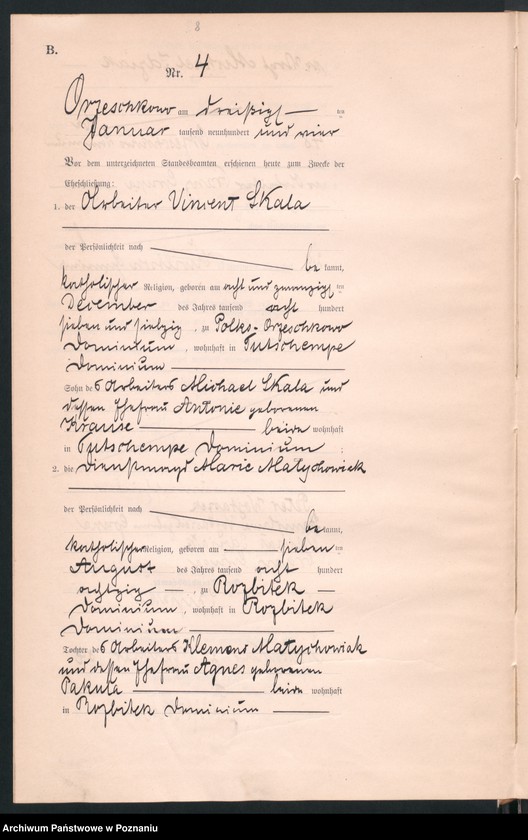 8
B.
Nr. 4
Orzeschkowo am dreißigsten
Januar tausend neunhundert und vier
Vor dem unterzeichneten Standesbeamten erschienen heute zum Zwecke der
Eheschließung:
1. der Arbeiter Vincent Skala
der Persönlichkeit nach
be kannt,
katholischer Religion, geboren am acht und zwanzigsten
December des Jahres tausend acht hundert
sieben und siebzig, zu Polko-Orzeschkowo
Dominium, wohnhaft in Tutschempe
Dominium
Sohn des Arbeiters Michael Skala und
dessen Ehefrau Antonie geborenen
Krause beide wohnhaft
in Tutschempe Dominium ;
2. die Dienstmagd Marie Matychowiak
der Persönlichkeit nach
be kannt,
katholischer Religion, geboren am sieben ten
August des Jahres tausend acht hundert
achtzig, zu Rozbitek
Dominium, wohnhaft in Rozbitek
Dominium
Tochter des Arbeiters Klemens Matychowiak
und dessen Ehefrau Agnes geborenen
Pakula beide wohnhaft
in Rozbitek Dominium
Archiwum Państwowe w Poznaniu